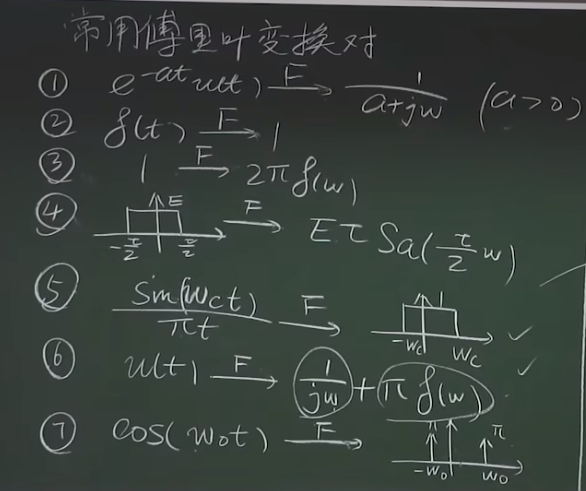 常用傅里叶变换对
① e^{-at}u(t) \xrightarrow{F} \frac{1}{a+jw} (a>0)
② δ(t) \xrightarrow{F} 1
③ 1 \xrightarrow{F} 2πδ(w)
④ E -\frac{τ}{2} \frac{τ}{2} \xrightarrow{F} Eτ Sa(\frac{τ}{2}w)
⑤ \frac{sin(w_ct)}{πt} \xrightarrow{F} 1 -w_c w_c ✓
⑥ u(t) \xrightarrow{F} \frac{1}{jw} + πδ(w) ✓
⑦ cos(w_0t) \xrightarrow{F} π -w_0 w_0